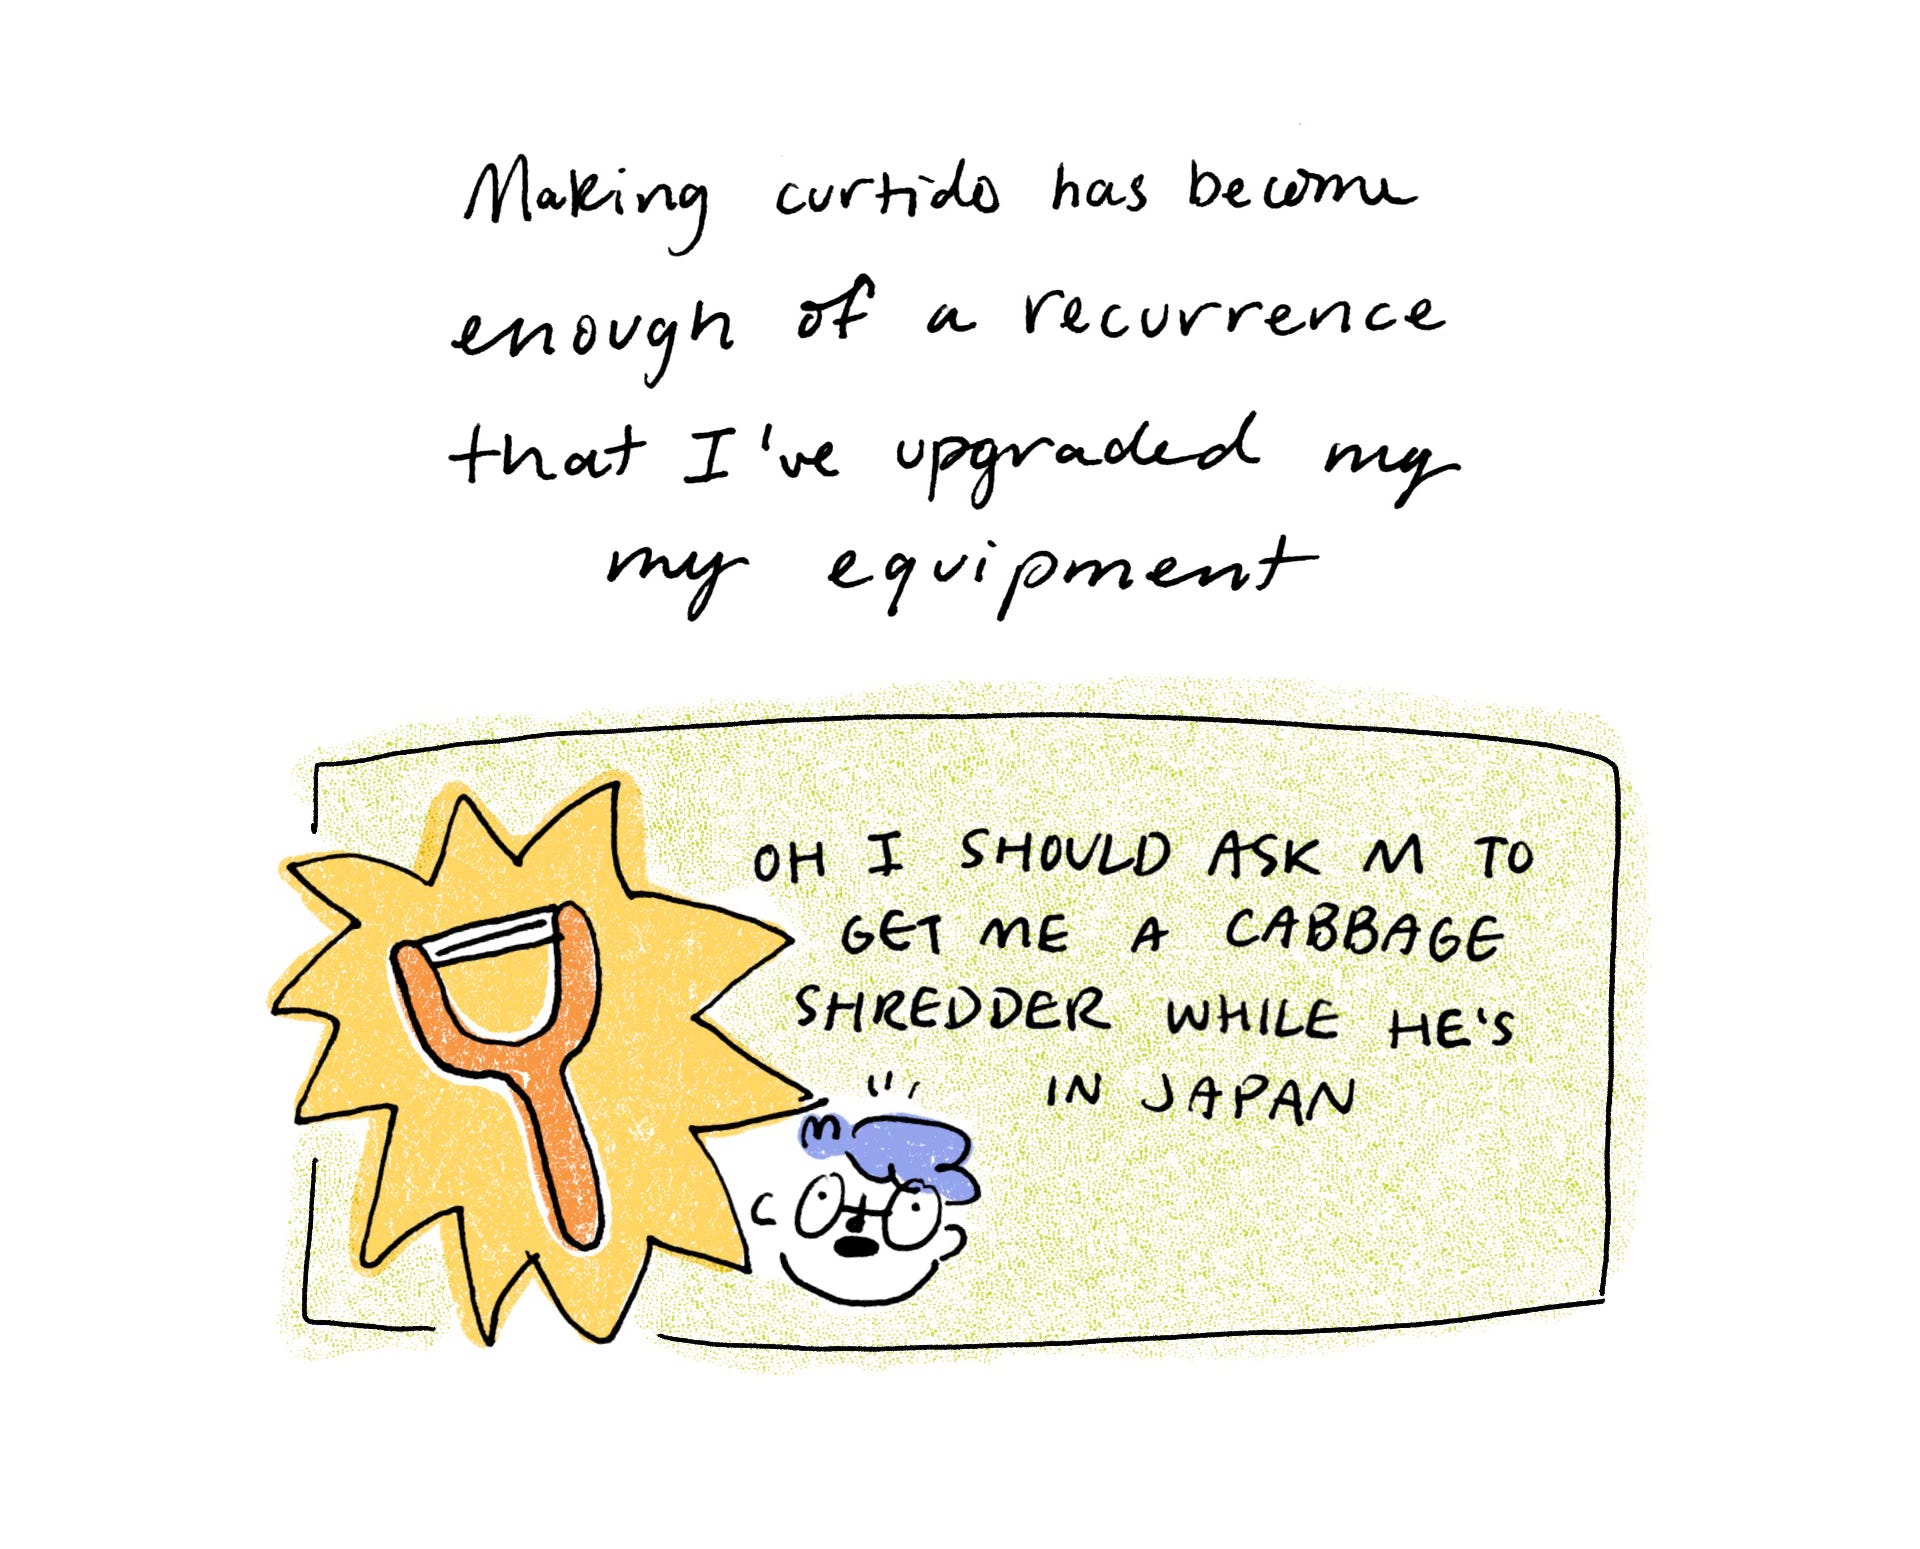 Making curtido has become
enough of a recurrence
that I've upgraded my
my equipment
OH I SHOULD ASK M TO
GET ME A CABBAGE
SHREDDER WHILE HE'S
IN JAPAN